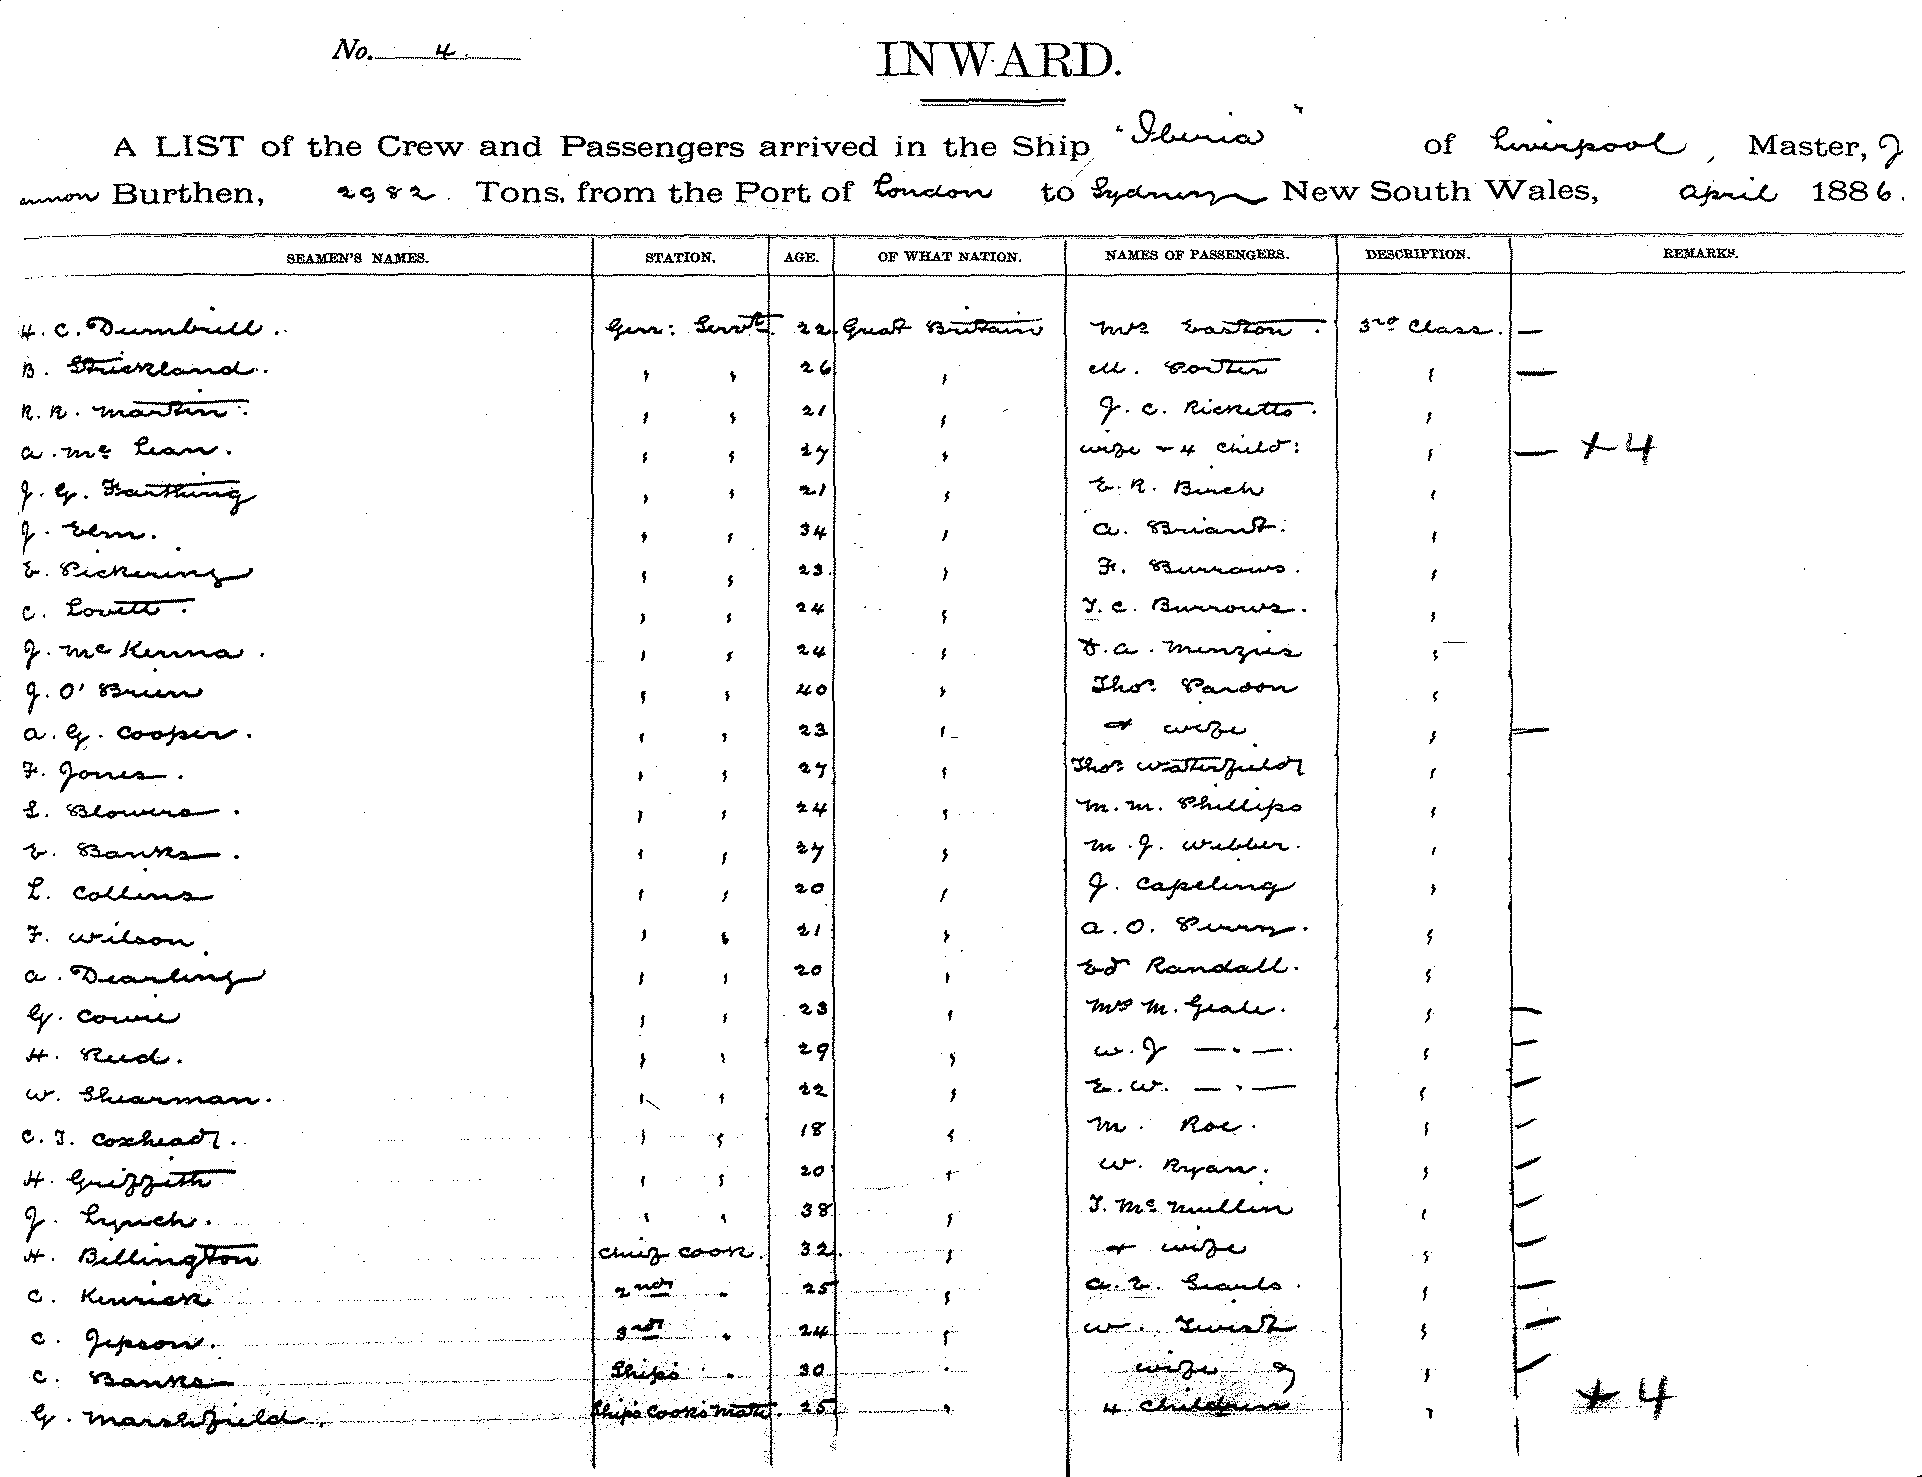 No. 4
INWARD.
A LIST of the Crew and Passengers arrived in the Ship "Iberia" of Liverpool, Master, J
Burthen, 2982 Tons, from the Port of London to Sydney New South Wales, April 1886.
SEAMEN'S NAMES. STATION. AGE. OF WHAT NATION. NAMES OF PASSENGERS. DESCRIPTION. REMARKS.
H. C. Dumbrill. Gen: Servt. 22 Great Britain Mrs Easton. 3rd Class. —
B. Strickland. " " 26 " M. Porter " —
R. R. Martin. " " 21 " J. C. Ricketts. "
A. Mc Lean. " " 27 " wife + 4 child: " — + 4
J. G. Farthing " " 21 " E. R. Birch "
J. Elm. " " 34 " A. Briant. "
E. Pickering " " 23 " F. Burrows. "
C. Lovett. " " 24 " T. C. Burrows. "
J. McKenna. " " 24 " D. A. Menzies "
J. O'Brien " " 40 " Thos. Pardon "
A. G. Cooper. " " 23 " + wife " —
F. Jones. " " 27 " Thos Waterfield "
L. Blowers. " " 24 " M. M. Phillips "
E. Banks. " " 27 " M. J. Webber. "
L. Collins " " 20 " J. Capeling "
F. Wilson " " 21 " A. O. Perry. "
A. Dearling " " 20 " Ed Randall. "
G. Cowie " " 23 " Mrs M. Geale. " —
H. Reed. " " 29 " W. J —.— " —
W. Shearman. " " 22 " E. W. —.— " —
C. T. Coxhead. " " 18 " M. Roe. " —
H. Griffith " " 20 " W. Ryan. " —
J. Lynch. " " 38 " T. Mc Mullen " —
H. Billington Chief Cook. 32 " + wife " —
C. Kenrick 2nd " 25 " A. E. " —
C. Jepson. 3rd " 24 " W. Twist " —
C. Banks Ship's " 30 " wife & " —
G. Marshfield. Ship's Cook's Mate. 25 " 4 children " + 4